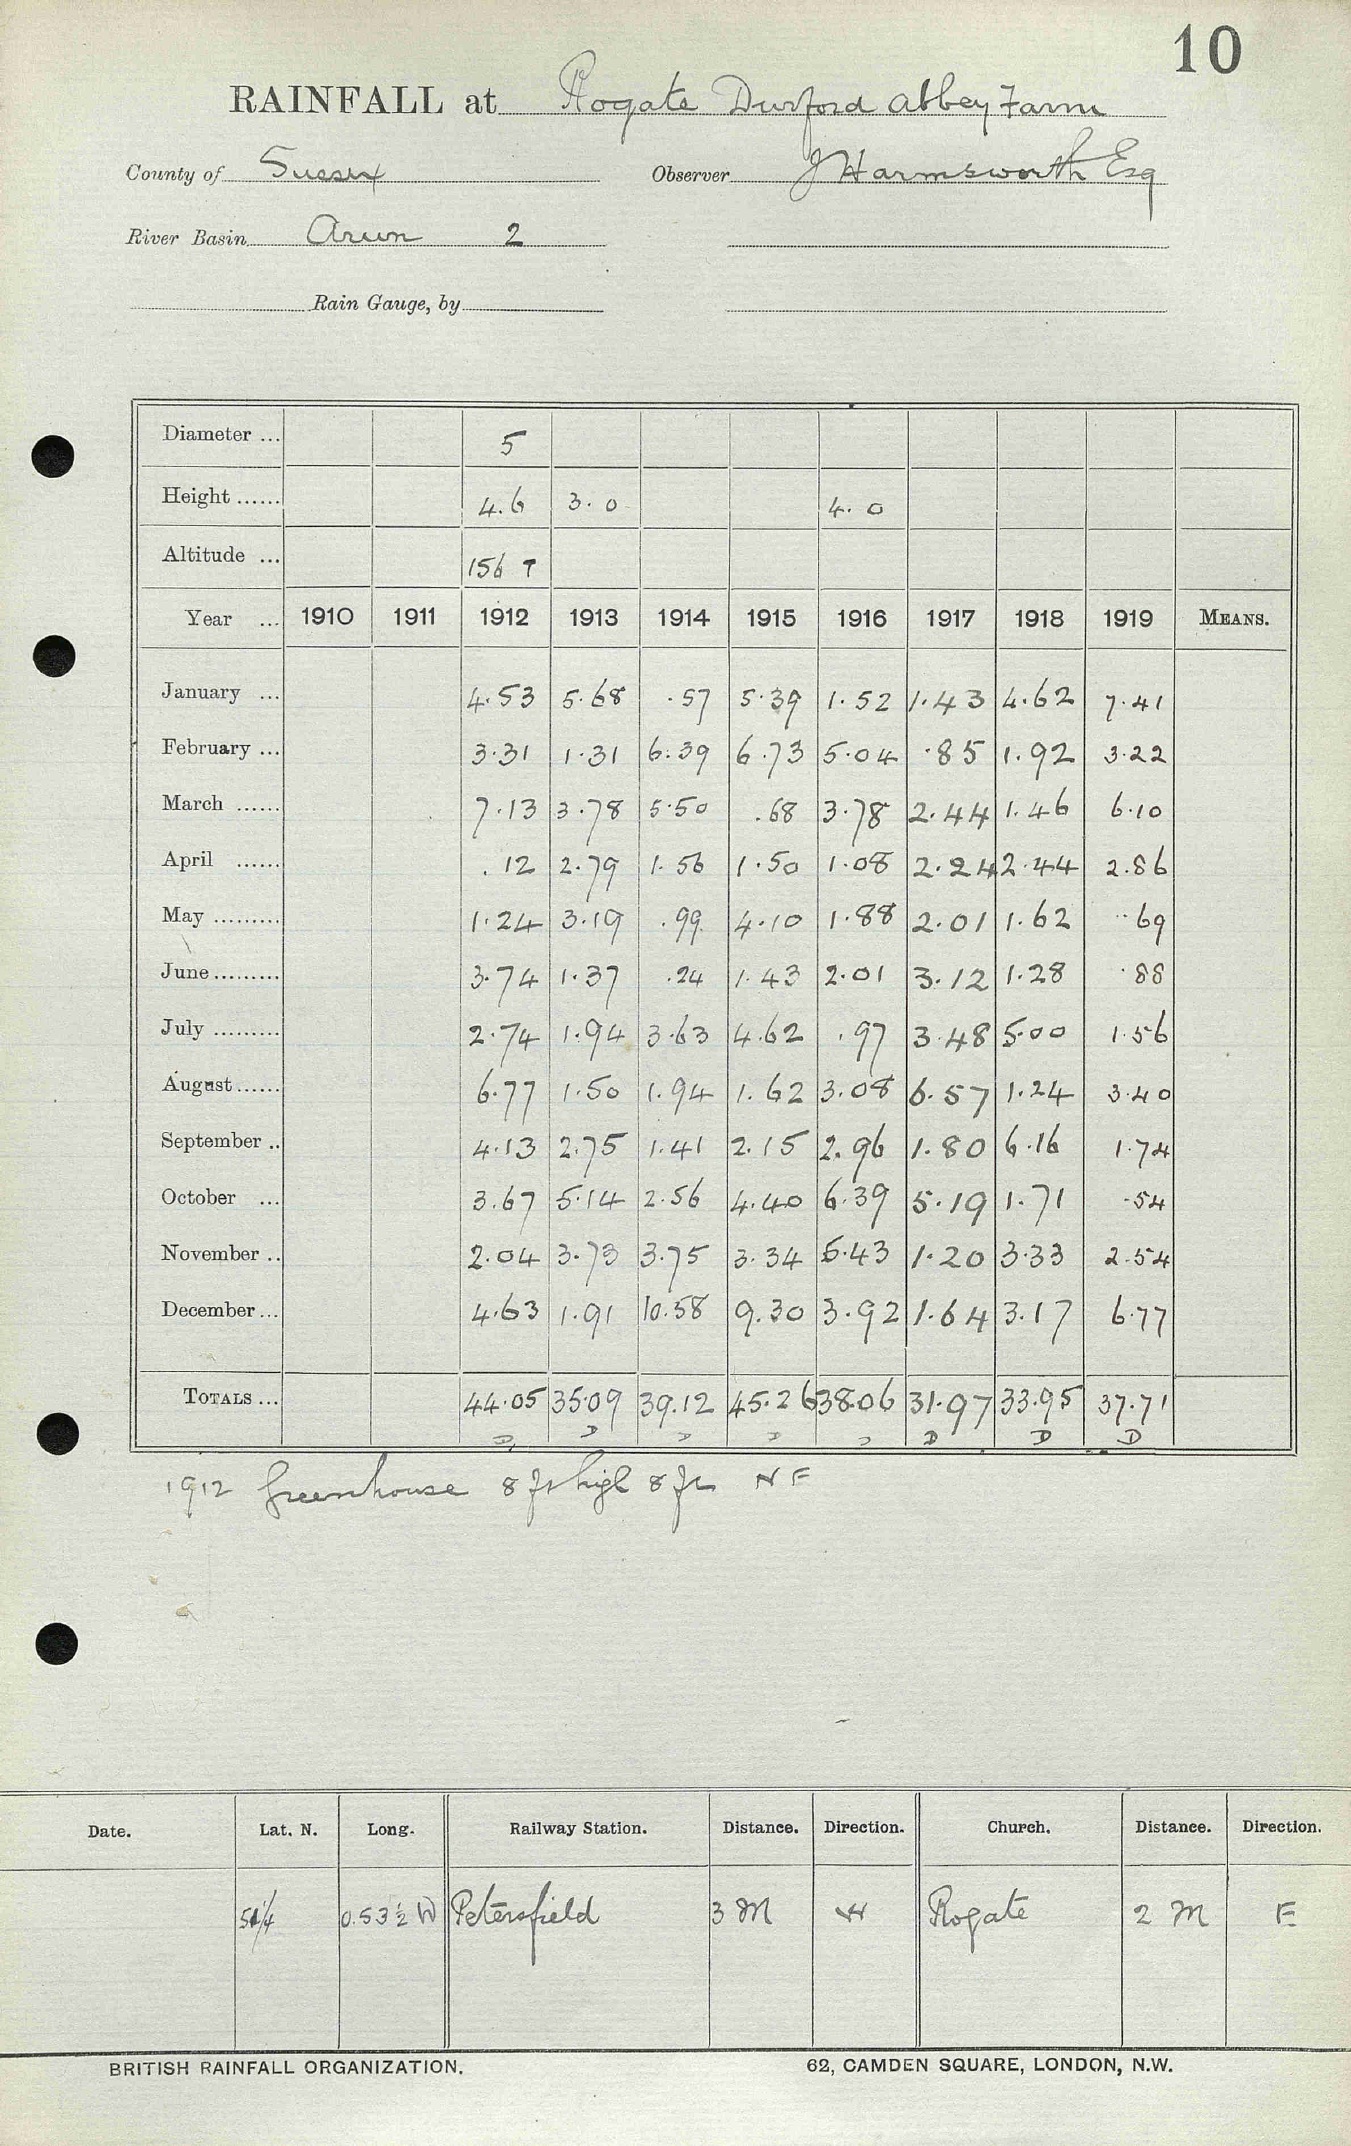 10
RAINFALL at Rogate Durford Abbey Farm
County of Sussex Observer J Harmsworth Esq
River Basin Arun 2
Rain Gauge, by
Diameter ... 5
Height ...... 4.6 3.0 4.0
Altitude ... 156 T
Year ... 1910 1911 1912 1913 1914 1915 1916 1917 1918 1919 MEANS.
January ... 4.53 5.68 .57 5.39 1.52 1.43 4.62 7.41
February ... 3.31 1.31 6.39 6.73 5.04 .85 1.92 3.22
March ...... 7.13 3.78 5.50 .68 3.78 2.44 1.46 6.10
April ...... .12 2.79 1.56 1.50 1.08 2.24 2.44 2.86
May ......... 1.24 3.19 .99 4.10 1.88 2.01 1.62 .69
June ......... 3.74 1.37 .24 1.43 2.01 3.12 1.28 .88
July ......... 2.74 1.94 3.63 4.62 .97 3.48 5.00 1.56
August ...... 6.77 1.50 1.94 1.62 3.08 6.57 1.24 3.40
September .. 4.13 2.75 1.41 2.15 2.96 1.80 6.16 1.74
October ... 3.67 5.14 2.56 4.40 6.39 5.19 1.71 .54
November .. 2.04 3.73 3.75 3.34 5.43 1.20 3.33 2.54
December ... 4.63 1.91 10.58 9.30 3.92 1.64 3.17 6.77
TOTALS ... 44.05 35.09 39.12 45.26 38.06 31.97 33.95 37.71
D D D D D D D D
1912 Greenhouse 8 ft high 8 ft NE
Date. Lat. N. Long. Railway Station. Distance. Direction. Church. Distance. Direction.
51 0.53½ W Petersfield 3 M W Rogate 2 M E
BRITISH RAINFALL ORGANIZATION. 62, CAMDEN SQUARE, LONDON, N.W.